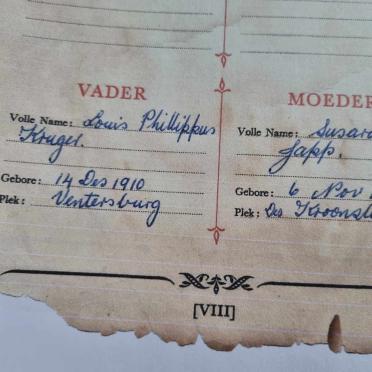 VADER
Volle Name: Louis Phillippus
Kruger.
Gebore: 14 Des 1910
Plek: Ventersburg
MOEDER
Volle Name: Susara
Japp.
Gebore: 6 Nov
Plek: Des
[VIII]